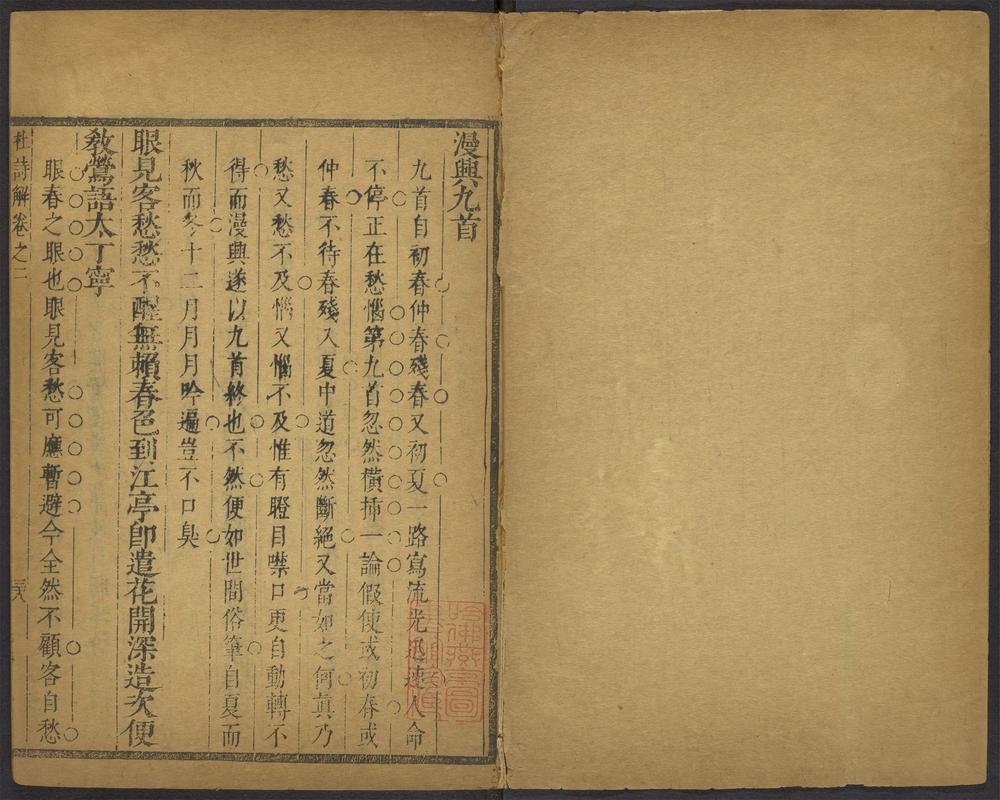 漫興九首
九首自初春仲春殘春又初夏一路寫流光迅速人命
不停正在愁惱第九首忽然橫揷一論假使或初春或
仲春不待春殘入夏中道忽然斷絕又當如之何真乃
愁又愁不及惱又惱不及惟有瞪目噤口更自動轉不
得而漫興遂以九首終也不然便如世間俗筆自夏而
秋而冬十二月月月吟遍豈不口臭
眼見客愁愁不醒無賴春色到江亭卽遣花開深造次便
教鶯語太丁寧
眼春之眼也眼見客愁可應暫避今全然不顧客自愁
杜詩解卷之二